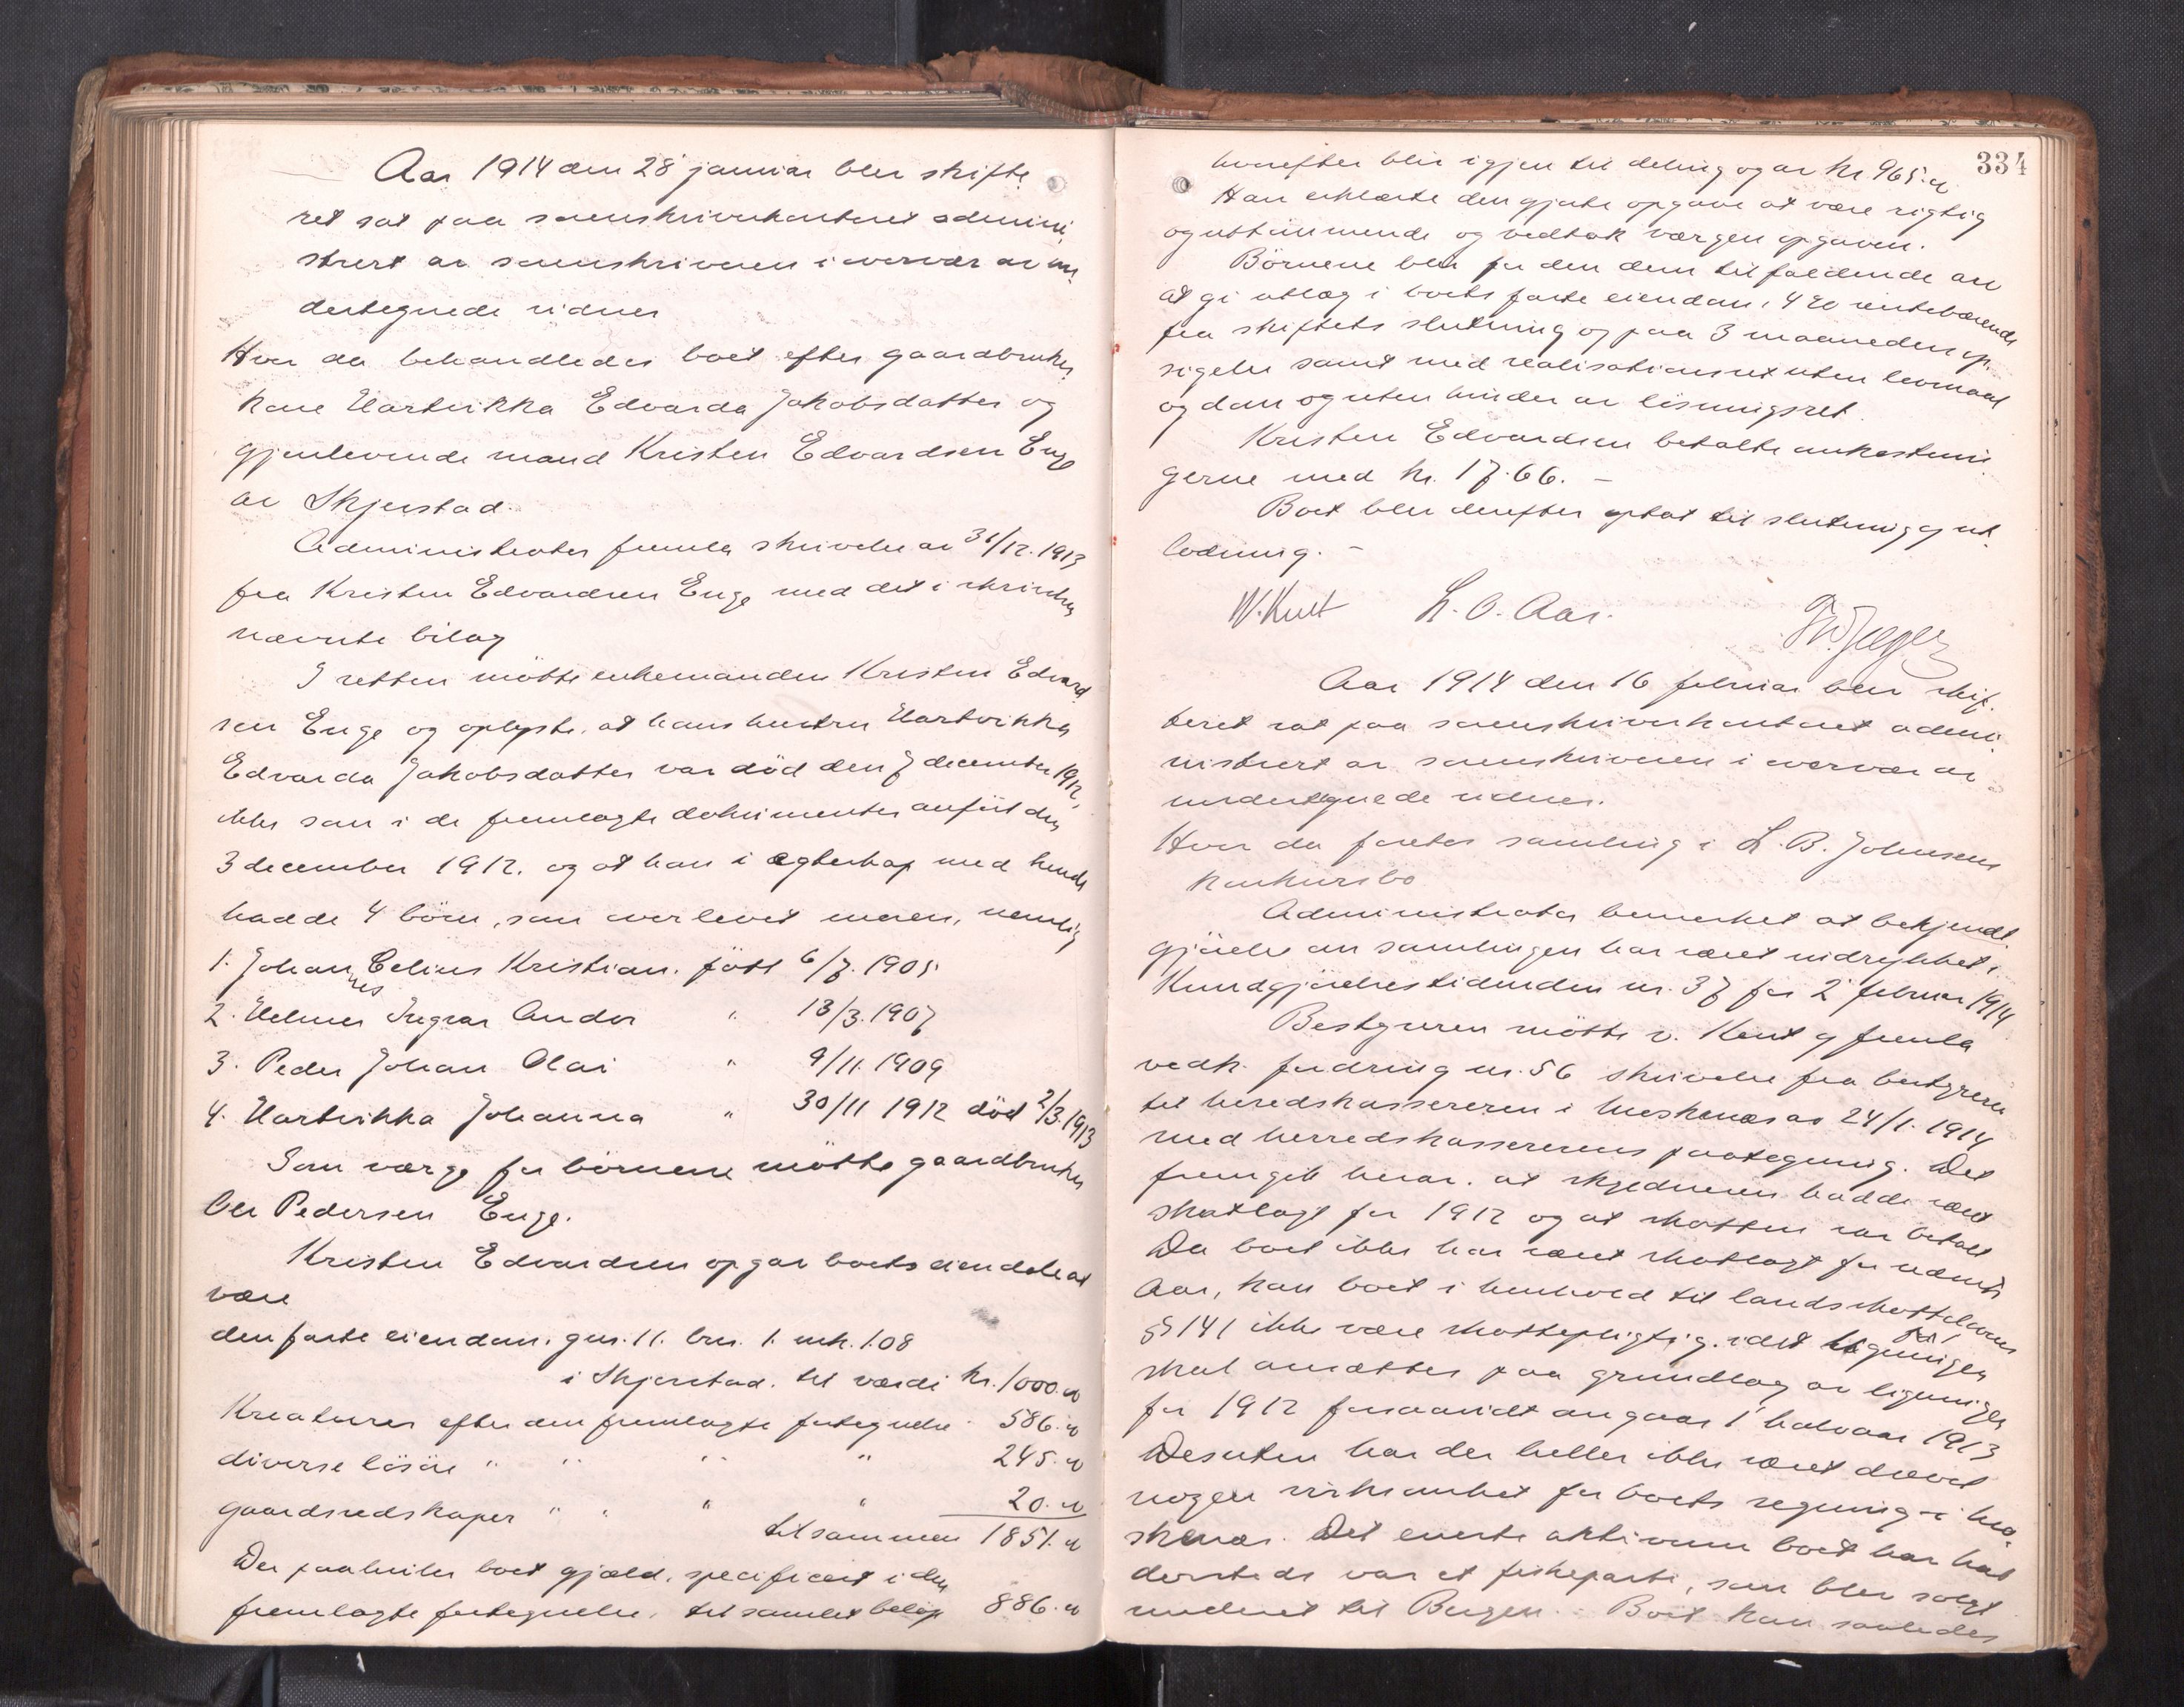 Aar 1914 den 28 januar blev skifte
ret sat paa sorenskriverkontoret admini
strert av sorenskriveren i overvær av un
dertegnede vidner
Hvor da behandledes boet efter gaardbruker
kone Hartvikka Edvarda Jakobsdatter og
gjenlevende mand Kristen Edvardsen Enge
av Skjerstad.
Administrator fremla skrivelse av 31/12.1913
fra Kristen Edvardsen Enge med det i skrivelsen
nævnte bilag
I retten møtte enkemanden Kristen Edvard
sen Enge og oplyste, at hans hustru Hartvikka
Edvarda Jakobsdatter var död den 7 december 1912,
ikke som i de fremlagte dokumenter anført den
3 december 1912. og at han i ægteskap med hende
hadde 4 børn, som overlevet moren, nemlig
1. Johannes Celius Kristian. født 6/7. 1905
2. Helmer Ingvar Andor " 13/3. 1907
3. Peder Johan Olai " 9/11. 1909
4. Hartvikka Johanna " 30/11 1912 död 2/3.1913
Som værge for börnene møtte gaardbruker
Ole Pedersen Enge.
Kristen Edvardsen opgav boets eiendele at
være
den faste eiendom. gnr. 11. brn. 1. mk. 1.08
i Skjerstad. til værdi kr. 1000.00
Kreaturer efter den fremlagte fortegnelse 586.00
diverse løsøre " " " " 245.00
gaardsredskaper " " " " 20.00
tilsammen 1851.00
Der paahviler boet gjæld, specificert i den
fremlagte fortegnelse, til samlet beløp 886.00
334
hvorefter blir igjen til deling og av kr. 965.00
Han erklærte den gjorte opgave at være rigtig
og uttømmende og vedtok værgen opgaven.
Børnene blev for den dem tilfaldende arv
at gi utlæg i boets faste eiendom, 4 % rentebærende
fra skiftets slutning og paa 3 maaneders op
sigelse samt med realisationsret uten lovmaal
og dom og uten hinder av løsningsret.
Kristen Edvardsen betalte omkostnin
gerne med kr. 17.66. -
Boet blev derefter optat til slutning og ut
lodning. -
L. O. Aas.
Aar 1914 den 16 februar blev skif
teret sat paa sorenskriverkontoret admi
nistrert av sorenskriveren i overvær av
undertegnede vidner.
Hvor da foretoges samling i L. B. Johnsens
konkursbo
Administrator bemerket at bekjendt
gjørelse om samlingen har været indrykket i
Kundgjørelsestidenden nr. 37 for 2 februar 1914
Bestyreren møtte v. Kent og fremla
vedk. fordring nr. 56 skrivelse fra bestyreren
til herredskassereren i Moskenæs av 24/1. 1914
med herredskassererens paategning. Det
fremgik herav. at skyldneren hadde været
skatlagt for 1912 og at skatten var betalt
Da boet ikke har været skatlagt for nævnte
Aar, kan boet i henhold til landsskattelovens
§ 141 ikke være skattepligtig. idet ligningen
skal ansættes paa grundlag av ligningen
for 1912 forsaavidt angaar 1 halvaar 1913
Desuten har der heller ikke været drevet
nogen virksomhet for boets regning i Mo
skenæs. Det eneste aktivum boet har hat
dersteds var et fiskeparti, som blev solgt
nedenst til Bergen. Boet kan saaledes